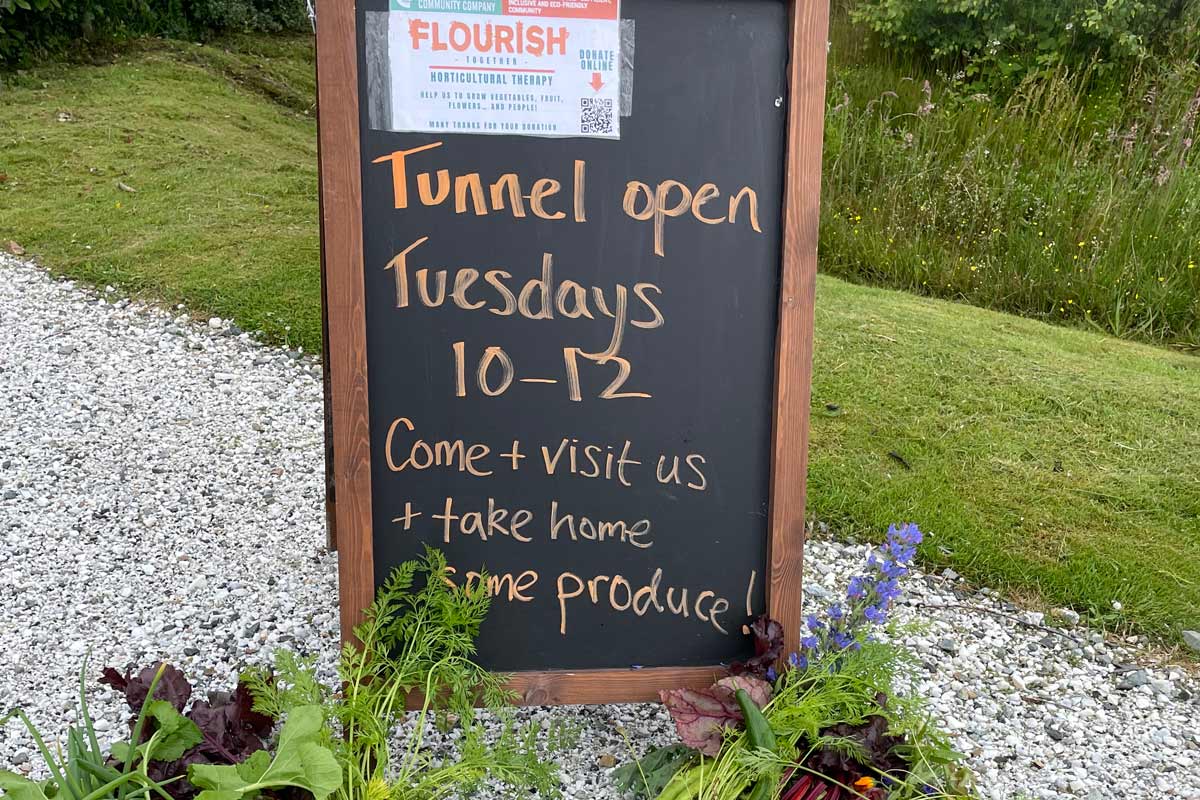 COMMUNITY COMPANY
INCLUSIVE AND ECO-FRIENDLY
COMMUNITY
FLOURISH
- TOGETHER -
HORTICULTURAL THERAPY
HELP US TO GROW VEGETABLES, FRUIT,
FLOWERS... AND PEOPLE!
MANY THANKS FOR YOUR DONATION
DONATE
ONLINE
Tunnel open
Tuesdays
10-12
Come + visit us
+ take home
some produce!